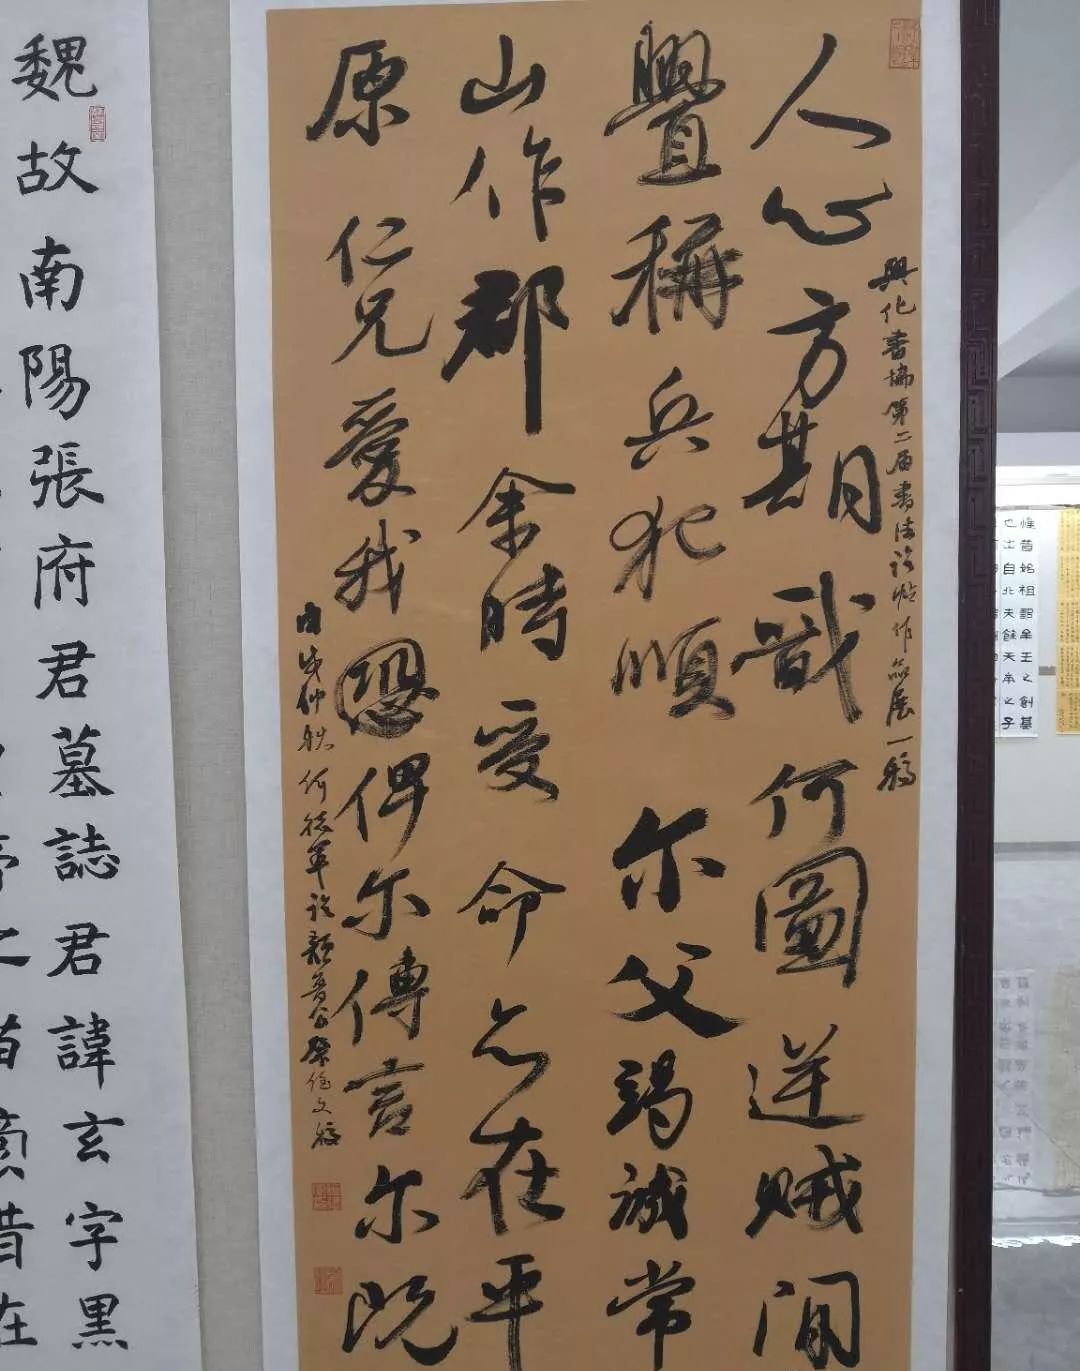 惟昔始祖鄒牟王之創基
也出自北夫餘天帝之子
興化書協第二届書法臨帖作品展一稿
人心方期戩何圖逆賊閒
舋稱兵犯順尔父竭誠常
山作郡余時受命亦在平
原仁兄愛我恐俾尔傳言尔既
戌仲秋何軍臨顏魯公祭侄文稿
魏故南陽張府君墓誌君諱玄字黑